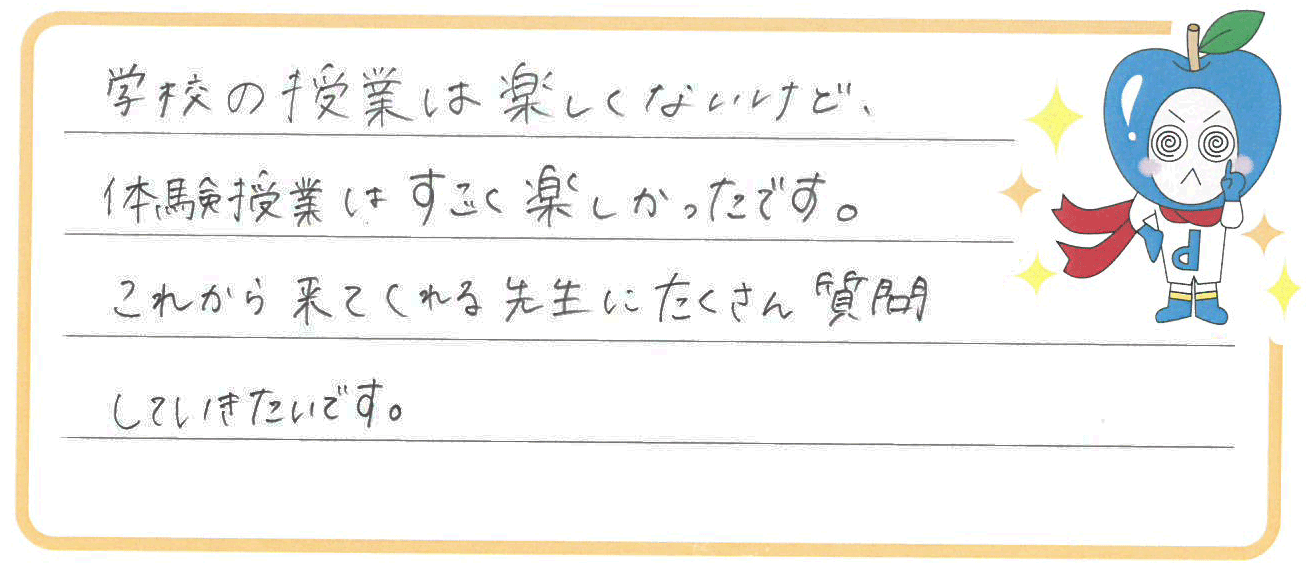 学校の授業は楽しくないけど、
体験授業はすごく楽しかったです。
これから来てくれる先生にたくさん質問
していきたいです。